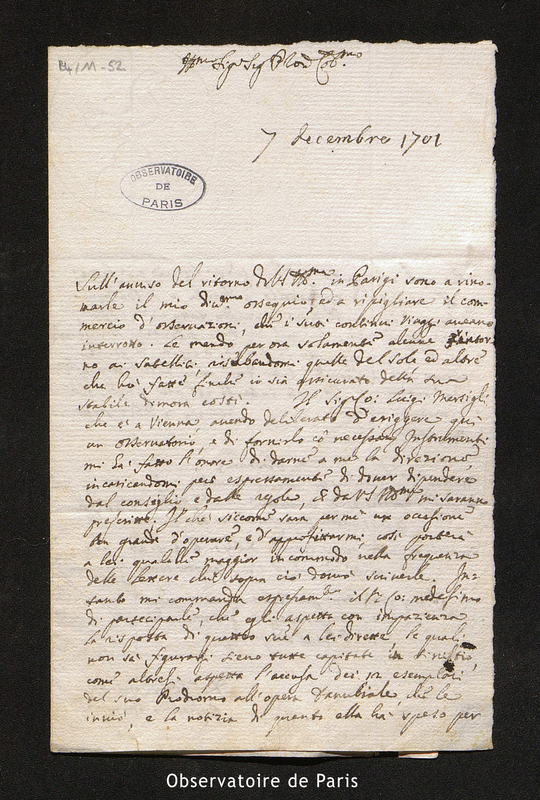 B4/M-52
Sig.r Sig.
7 decembre 1701
OBSERVATOIRE
DE
PARIS
Sull'auuiso del ritorno di VS Ill.ma in Parigi sono a rino-
uarle il mio diu.mo ossequio, ed a ripigliare il com-
mercio d'osseruazioni, che i suoi continui viaggi aueano
interrotto. Le mando per ora solamente alcune intor-
no ai Satelliti riserbandomi quelle del Sole ed altre
che hò fatte finche io sia assicurato della sua
stabile dimora costi. Il Sig. Co: Luigi Marsigli
che è a Vienna, auendo deliberato d'eriggere quì
un osseruatorio, e di fornirlo cò necessarj Instrumenti
mi hà fatto l'onore di darne a me la direzione,
incaricandomi però espressamente di douer dipendere
dal consiglio e dalle regole, che da VS Ill.ma mi saranno
prescritte. Il che siccome sarà per me una occasione
grande d'operare, e d'approfittarmi, così porterà
a lei qualche maggior incommodo nella frequenza
delle lettere che sopra ciò dourò scriuerle. In-
tanto mi commanda espressam.te il Sr. Co: medesimo
di parteciparle, che egli aspetta con impazienza
la risposta di quattro sue a lei dirette, le quali
non sà figurarsi sieno tutte capitate
come altresì aspetta l'accusa dei 12 esemplari
del suo Prodromo all'opera Danubiale che le
inuiò, e la notizia di quanto ella hà speso per
Observatoire de Paris